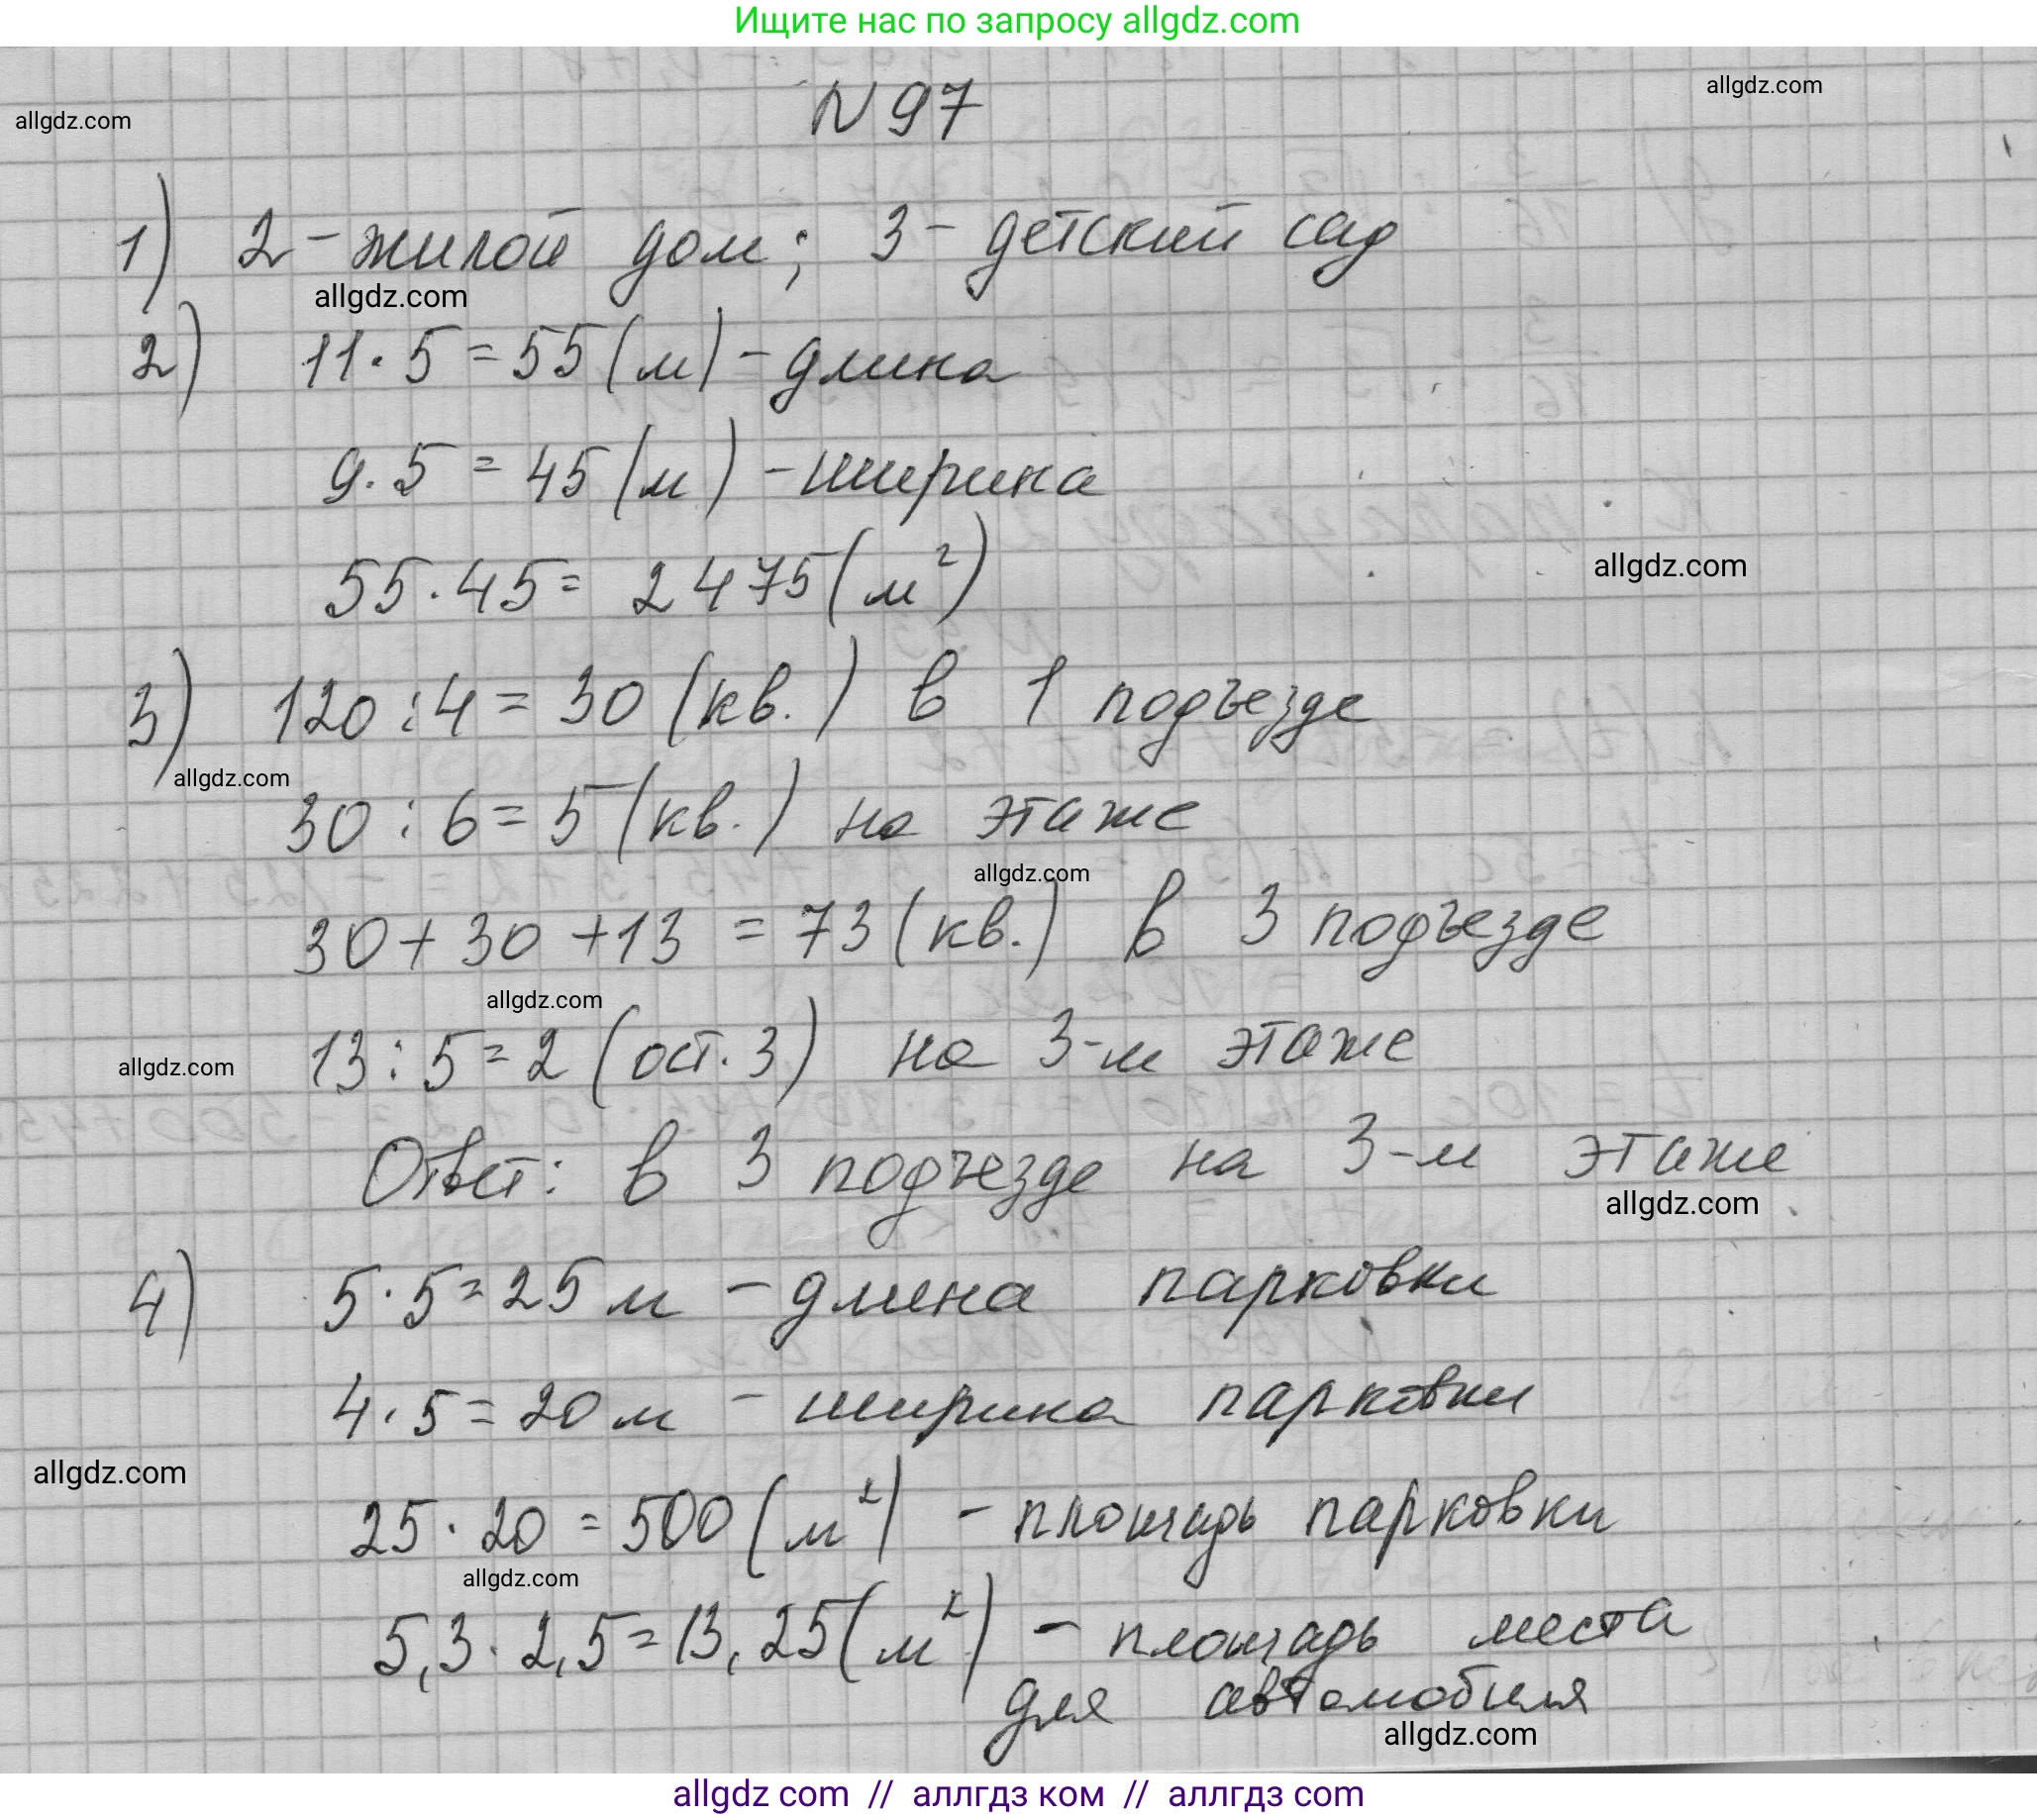 Ищите нас по запросу allgdz.com
N 97
allgdz.com
allgdz.com
1) 2 - жилой дом; 3 - детский сад
allgdz.com
2) 11 · 5 = 55 (м) - длина
9 · 5 = 45 (м) - ширина
55 · 45 = 2475 (м²)
allgdz.com
3) 120 : 4 = 30 (кв.) в 1 подъезде
allgdz.com
30 : 6 = 5 (кв.) на этаже
allgdz.com
30 + 30 + 13 = 73 (кв.) в 3 подъезде
allgdz.com
13 : 5 = 2 (ост. 3) на 3-м этаже
allgdz.com
Ответ: в 3 подъезде на 3-м этаже
allgdz.com
4) 5 · 5 = 25 м - длина парковки
4 · 5 = 20 м - ширина парковки
allgdz.com
25 · 20 = 500 (м²) - площадь парковки
allgdz.com
5,3 · 2,5 = 13,25 (м²) - площадь места
для автомобиля
allgdz.com
allgdz com // аллгдз ком // allgdz com